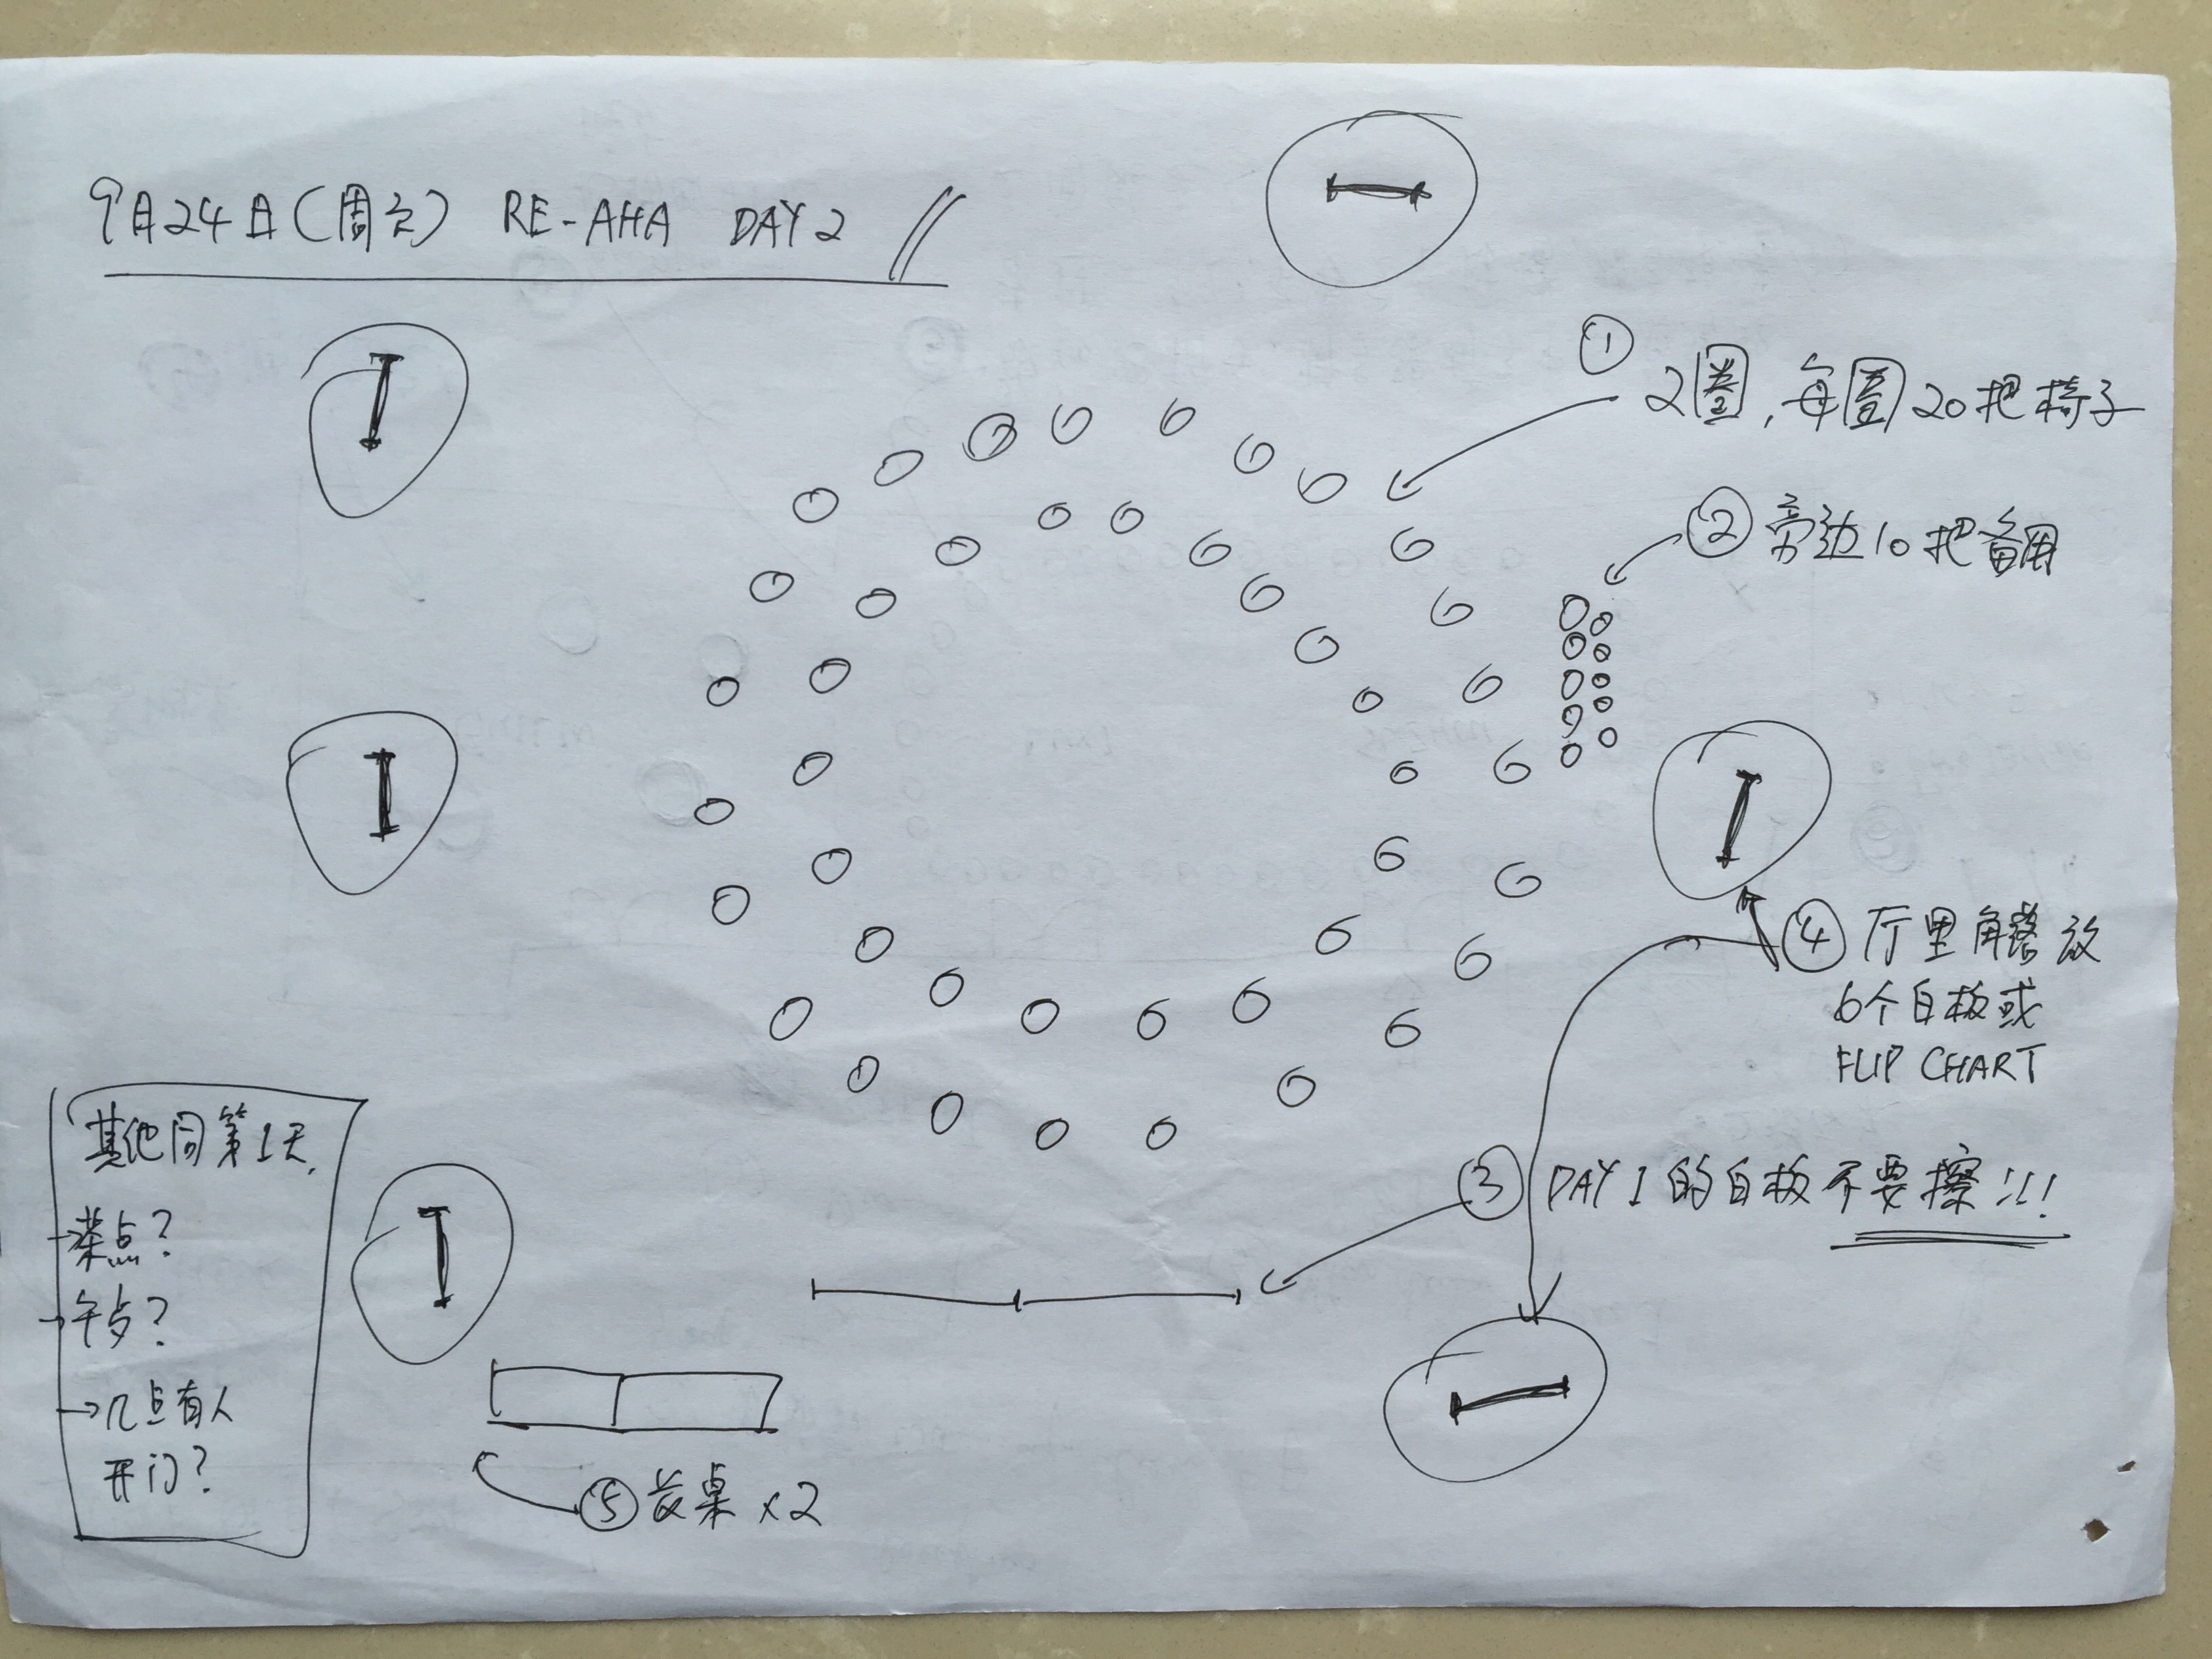 9月24日(周六) RE-AHA DAY 2
①
2圈,每圈20把椅子
② 旁边10把备用
④ 厅里角落放
6个白板或
FLIP CHART
③ DAY 1的白板不要擦!!!
其他同第1天,
→茶点?
→午点?
→几点有人
开门?
⑤ 长桌 x2